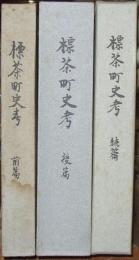 標茶町史考
前篇
標茶町史考
後篇
標茶町史考
続篇